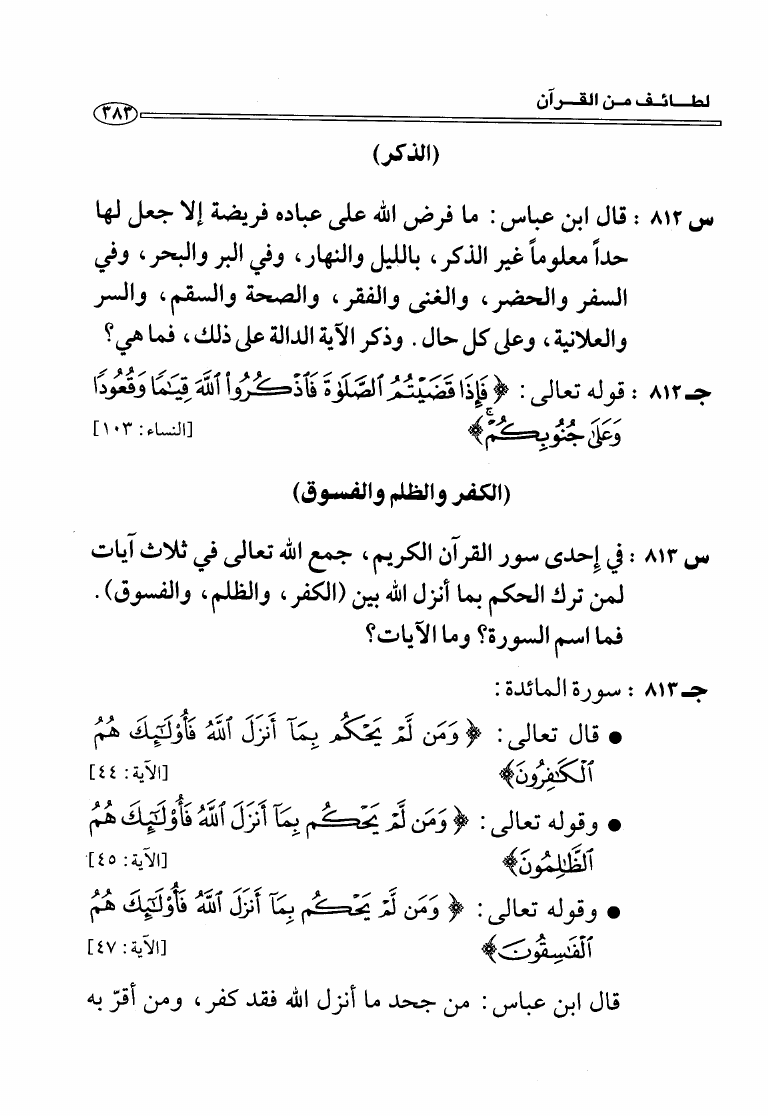 لطـــائـف مـن القـرآن
٣٨٣
(الذكر)
س ٨١٢ : قال ابن عباس: ما فرض الله على عباده فريضة إلا جعل لها
حداً معلوماً غير الذكر، بالليل والنهار، وفي البر والبحر، وفي
السفر والحضر، والغنى والفقر، والصحة والسقم، والسر
والعلانية، وعلى كل حال. وذكر الآية الدالة على ذلك، فما هي؟
جـ ٨١٢ : قوله تعالى: ﴿ فَإِذَا قَضَيْتُمُ ٱلصَّلَوٰةَ فَٱذْكُرُوا۟ ٱللَّهَ قِيَـٰمًا وَقُعُودًا
وَعَلَىٰ جُنُوبِكُمْ ۚ﴾ [النساء: ١٠٣]
(الكفر والظلم والفسوق)
س ٨١٣ : في إحدى سور القرآن الكريم، جمع الله تعالى في ثلاث آيات
لمن ترك الحكم بما أنزل الله بين (الكفر، والظلم، والفسوق).
فما اسم السورة؟ وما الآيات؟
جـ ٨١٣ : سورة المائدة:
● قال تعالى: ﴿ وَمَن لَّمْ يَحْكُم بِمَآ أَنزَلَ ٱللَّهُ فَأُو۟لَـٰٓئِكَ هُمُ
ٱلْكَـٰفِرُونَ﴾ [الآية: ٤٤]
● وقوله تعالى: ﴿ وَمَن لَّمْ يَحْكُم بِمَآ أَنزَلَ ٱللَّهُ فَأُو۟لَـٰٓئِكَ هُمُ
ٱلظَّـٰلِمُونَ﴾ [الآية: ٤٥]
● وقوله تعالى: ﴿ وَمَن لَّمْ يَحْكُم بِمَآ أَنزَلَ ٱللَّهُ فَأُو۟لَـٰٓئِكَ هُمُ
ٱلْفَـٰسِقُونَ﴾ [الآية: ٤٧]
قال ابن عباس: من جحد ما أنزل الله فقد كفر، ومن أقرّ به